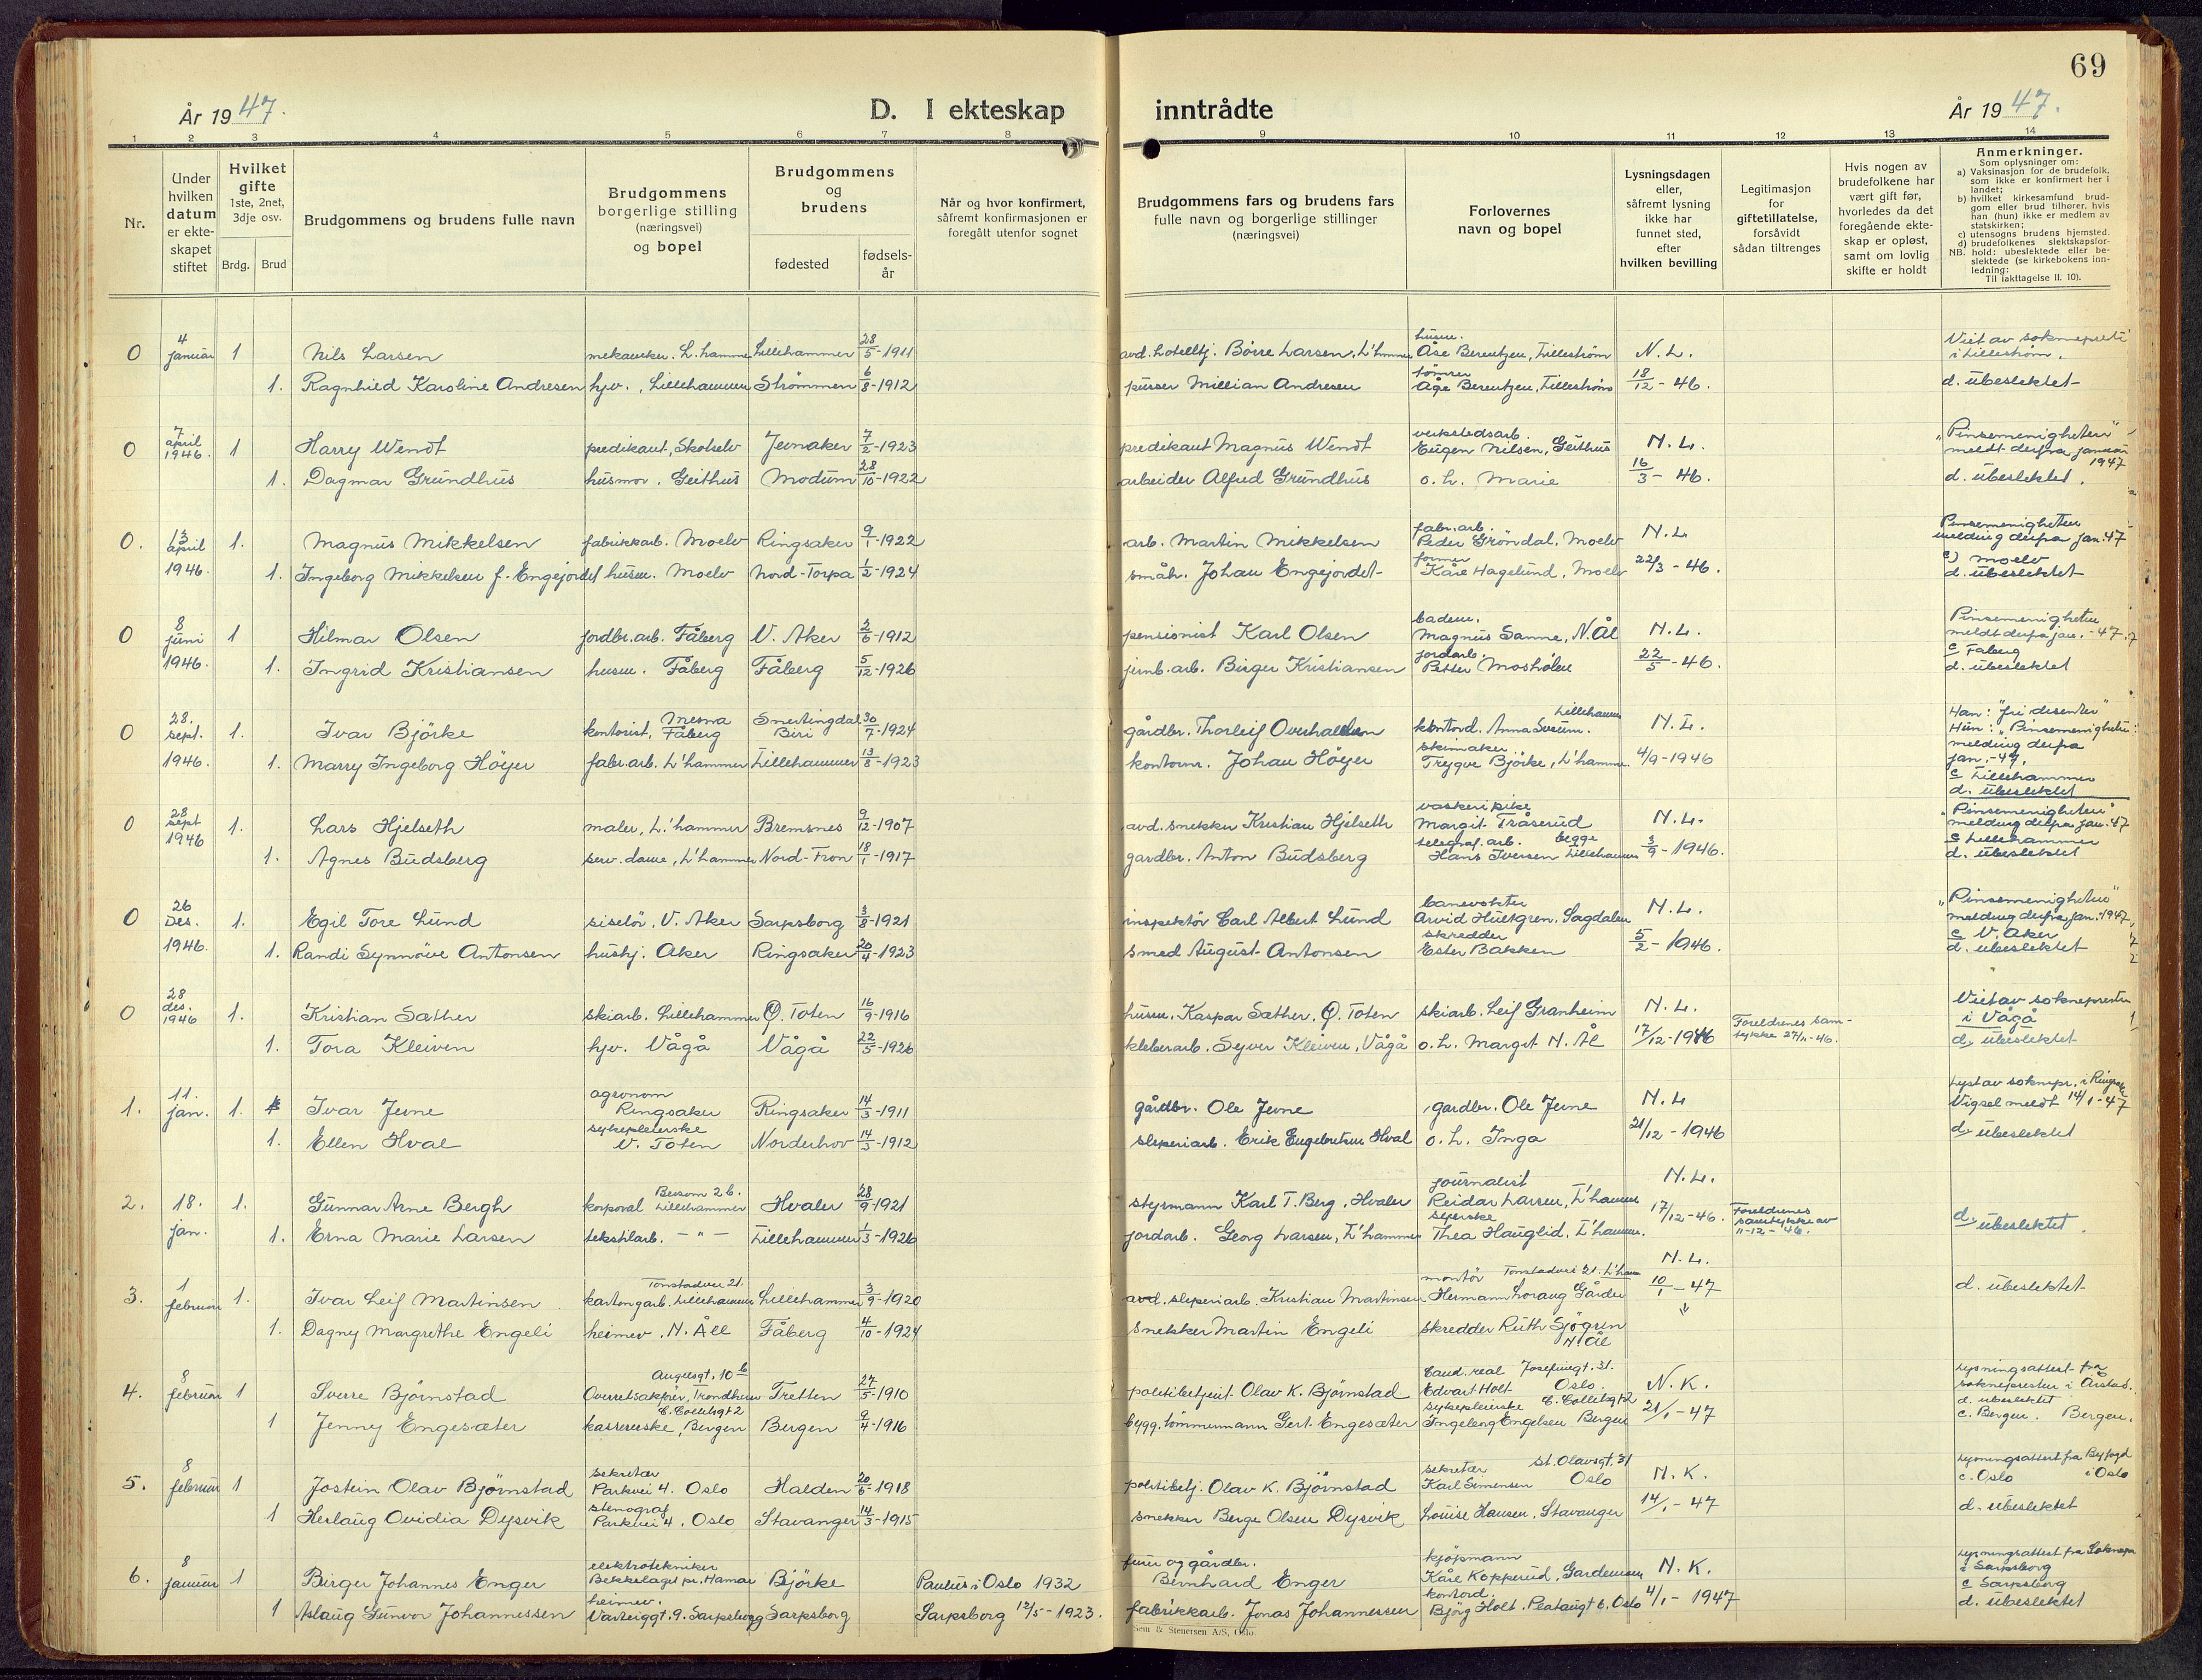 69
År 1947.
D. I ekteskap inntrådte
År 1947.
1 2 3 4 5 6 7 8 9 10 11 12 13 14
Nr.
Under hvilken datum er ekteskapet stiftet
Hvilket gifte 1ste, 2net, 3dje osv.
Brdg. Brud
Brudgommens og brudens fulle navn
Brudgommens borgerlige stilling (næringsvei) og bopel
Brudgommens og brudens
fødested
fødselsår
Når og hvor konfirmert, såfremt konfirmasjonen er foregått utenfor sognet
Brudgommens fars og brudens fars fulle navn og borgerlige stillinger (næringsvei)
Forlovernes navn og bopel
Lysningsdagen eller, såfremt lysning ikke har funnet sted, efter hvilken bevilling
Legitimasjon for giftetillatelse, forsåvidt sådan tiltrenges
Hvis nogen av brudefolkene har vært gift før, hvorledes da det foregående ekteskap er opløst, samt om lovlig skifte er holdt
Anmerkninger.
Som oplysninger om:
a) Vaksinasjon for de brudefolk, som ikke er konfirmert her i landet;
b) hvilket kirkesamfund brudgom eller brud tilhører, hvis han (hun) ikke er medlem av statskirken;
c) utensogns brudens hjemsted.
d) brudefolkenes slektskapsforhold: ubeslektede eller beslektede (se kirkebokens innledning:
NB. Til iakttagelse II. 10).
0 4 januar 1 Nils Larsen mekaniker. L.hammer Lillehammer 28/5-1911 avd. hotelltj. Börre Larsen, L'hammer husm. Åse Berentzen, Lilleström N.L. Viet av sokneprest i Lilleström.
1. Ragnhild Karoline Andresen hjv., Lillehammer Strömmen 6/8-1912 pusser Millian Andresen tömrer Åge Berentzen, Lilleström 18/12-46. d. ubeslektet
0 7 april 1946. 1 Harry Wendt predikant, Skotselv Jevnaker 7/2-1923 predikant Magnus Wendt verkstedsarb. Eugen Nilsen, Geithus N.L. "Pinsemenigheten" meldt derfra januar 1947
1. Dagmar Grundhus husmor. Geithus Modum 28/10-1922 arbeider Alfred Grundhus o.h. Marie 16/3-46. d. ubeslektet.
0. 13 april 1946. 1. Magnus Mikkelsen fabrikkarb. Moelv Ringsaker 9/1-1922 arb. Martin Mikkelsen fabr.arb. Peder Gröndal. Moelv N.L. Pinsemenigheten melding derfra jan. 47
1. Ingeborg Mikkelsen f. Engejordet husm. Moelv Nord-Torpa 1/2-1924 småb. Johan Engejordet Kåre Hagelund, Moelv 22/3-46. c) Moelv d. ubeslektet
0 8 juni 1946. 1 Hilmar Olsen jordbr.arb. Fåberg V. Aker 2/6-1912 pensionist Karl Olsen badem. Magnus Sanne, N Ål N.L. Pinsemenigheten meldt derfra jan.-47.
1. Ingrid Kristiansen husm. Fåberg Fåberg 5/12-1926 jernb.arb. Birger Kristiansen jordarb. Petter Mosholen 22/5-46. c Fåberg d. ubeslektet
0 28. sept. 1946. 1. Ivar Björke kontorist, Mesna Fåberg Snertingdal Biri 30/7-1924 gårdbr. Thorleif Overhalden kontord. Anna Sveum. Lillehammer N.L. Han: "fri disenter" Hun: "Pinsemenigheten": melding derfra jan.-47.
1. Marry Ingeborg Höyer fabr.arb. L'hammer Lillehammer 13/8-1923 kontorm. Johan Höyer skimaker Trygve Björke, L'hammer 4/9-1946 c Lillehammer d. ubeslektet
0 28 sept 1946 1. Lars Hjelseth maler, L.'hammer Bremsnes 9/12-1907 avd. snekker Kristian Hjelseth vaskeripike Margit Tråserud N.L. "Pinsemenigheten" melding derfra jan. 47
1. Agnes Budsberg serv.dame, L'hammer Nord-Fron 18/1-1917 gardbr. Anton Budsberg telegraf.arb. begge Hans Iversen Lillehammer 3/9-1946. c Lillehammer d. ubeslektet
0 26 Des. 1946. 1. Egil Tore Lund siselör, V. Aker Sarpsborg 3/8-1921 inspektör Carl Albert Lund banevokter Arvid Hultgren, Sagdalen N.L. "Pinsemenigheten" melding derfra jan. 1947.
1. Randi Synnöve Antonsen hushj. Aker Ringsaker 20/4-1923 smed August Antonsen skredder Ester Bakken 5/2-1946. c V. Aker d. ubeslektet
0 28 des. 1946 1. Kristian Sæther skiarb. Lillehammer Ö. Toten 16/9-1916 husm. Kaspar Sæther. Ö. Toten skiarb. Leif Granheim N.L. Viet av soknepresten i Vågå
1. Tora Kleiven hjv. Vågå Vågå 22/5-1926 kleberarb. Syver Kleiven, Vågå o.h. Margit N. Ål 17/12-1946 Foreldrenes samtykke 27/11-46. d. ubeslektet
1. 11. jan. 1. Ivar Jevne agronom Ringsaker Ringsaker 14/3-1911 gårdbr. Ole Jevne gardbr. Ole Jevne N.L Lyst av soknepr. i Ringsaker Vigsel meldt 14/1-47
1. Ellen Hval sykepleierske V. Toten Norderhov 14/3-1912 sliperiarb. Erik Engebretsen Hval o.h. Inga 21/12-1946 d. ubeslektet
2. 18. jan. 1. Gunnar Arne Bergh korporal Bersom 2b. Lillehammer Hvaler 28/9-1921 styrmann Karl T. Berg, Hvaler journalist Reidar Larsen, L'hammer N.L.
1. Erna Marie Larsen tekstilarb. -"- Lillehammer 1/3-1926 jordarb. Georg Larsen, L'hammer Thea Hauglid. L'hammer. 17/12-46. Foreldrenes samtykke av 11-12-46. d. ubeslektet.
3. 1 februar 1. Ivar Leif Martinsen Tonstadvn 21. kartongarb. Lillehammer Lillehammer 3/9-1920 avd. sliperiarb. Kristian Martinsen montör Tonstadvei 21. L'ham Hermann Lorang Gårder N.L. 10/1-47 d. ubeslektet
1. Dagny Margrethe Engeli heimev. N. Åll Fåberg 4/10-1924 snekker Martin Engeli skredder Ruth Sjögren N. Ål
4. 8 februar 1 Sverre Björnstad Angelsgt. 10 b Overrettssakförer, Trondheim Tretten 27/5-1910 politibetjent Olav K. Björnstad Cand. real Josefinegt. 31. Edvart Holt Oslo. N.K. Lysningsattest fra soknepresten i Årstad.
1 Jenny Engesæter C. Colletsgt 2 kassererske, Bergen Bergen 9/4-1916 bygg. tömmermann Gert. Engesæter sykepleierske C. Colletsgt 2 Ingeborg Engelsen Bergen 21/1-47 d. ubeslektet c. Bergen. Bergen.
5. 8 februar 1 Jostein Olav Björnstad sekretær Parkvei 4. Oslo Halden 20/5-1918 politibetj. Olav K. Björnstad sekretær St. Olavsgt. 31 Karl Simensen Oslo N.K. Lysningsattest fra Byfogd i Oslo c. Oslo
1 Herlaug Ovidia Dysvik stenograf Parkvei 4. Oslo Stavanger 14/3-1915 snekker Berge Olsen Dysvik Louise Hansen, Stavanger 14/1-47 d. ubeslektet
6. 8 januar 1 Birger Johannes Enger elektrotekniker Bekkelaget pr. Hamar Björke Paulus i Oslo 1932 og gårdbr. Bernhard Enger kjöpmann Kåre Kopperud, Gardemoen N.K. Lysningsattest fra Soknepr i Sarpsborg
1 Aslaug Gunvor Johannessen heimev. Varteiggt. 9. Sarpsborg Sarpsborg Sarpsborg 12/5-1923. fabrikkarb. Jonas Johannessen kontord. Björg Holt. 6. Oslo 4/1-1947 c Sarpsborg d. ubeslektet
Sem & Stenersen A/S, Oslo.